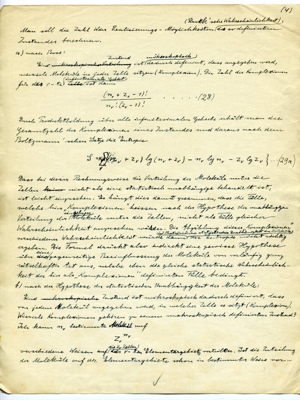 (4)
(Bose'sche Wahrscheinlichkeit),
Man soll die Zahl der Realisierungs-Möglichkeiten so definierten
Zustandes berechnen.
a) nach Bose:
Zustand mikroskopisch
dadurch definiert, dass angegeben wird,
wieviele Moleküle in jeder Zelle sitzen (Komplexion). Die Zahl der Komplexionen
für das ν-te ist dann
(n_ν + z_ν - 1)!
n_ν! (z_ν - 1)! ....(28)
Durch Produktbildung über alle infinitesimalen Gebiete erhält man die
Gesamtzahl der Komplexionen eines Zustandes und daraus nach dem
Boltzmann'schen Satze die Entropie
S = (n_ν + z_ν) lg (n_ν + z_ν) - n_ν lg n_ν - z_ν lg z_ν} ...(29a)
Dass bei dieser Rechnungsweise die Verteilung der Moleküle unter die
Zellen nicht als eine statistisch unabhängige behandelt ist,
ist leicht einzusehen. Es hängt dies damit zusammen, dass die Fälle,
welche hier "Komplexionen" heissen, nach der Hypothese der unabhängigen
Verteilung der unter die Zellen, nicht als Fälle gleicher
Wahrscheinlichkeit anzusehen wären. Die Abzählung dieser "Komplexionen"
verschiedener Wahrscheinlichkeit
Die Formel drückt also indirekt eine gewisse Hypothese
über gegenseitige Beeinflussung der Moleküle von vorläufig ganz
rätselhafter Art aus, welche eben die gleiche statistische Wahrscheinlich-
keit der hier als Komplexionen definierten Fälle bedingt.
b) nach der Hypothese der statistischen Unabhängigkeit der Moleküle:
Zustand ist mikroskopisch dadurch definiert, dass
von jedem Molekül angegeben wird, in welcher Zelle es sitzt (Komplexion).
Wieviele Komplexionen gehören zu einem makroskopisch definierten Zustand?
Ich kann n_ν bestimmte Moleküle auf
z_ν^{n_ν}
verschiedene Weisen auf die z_ν Zellen des ν-ten Elementargebietes verteilen. Ist die Verteilung
der Moleküle auf die Elementargebiete schon in bestimmter Weise vor-